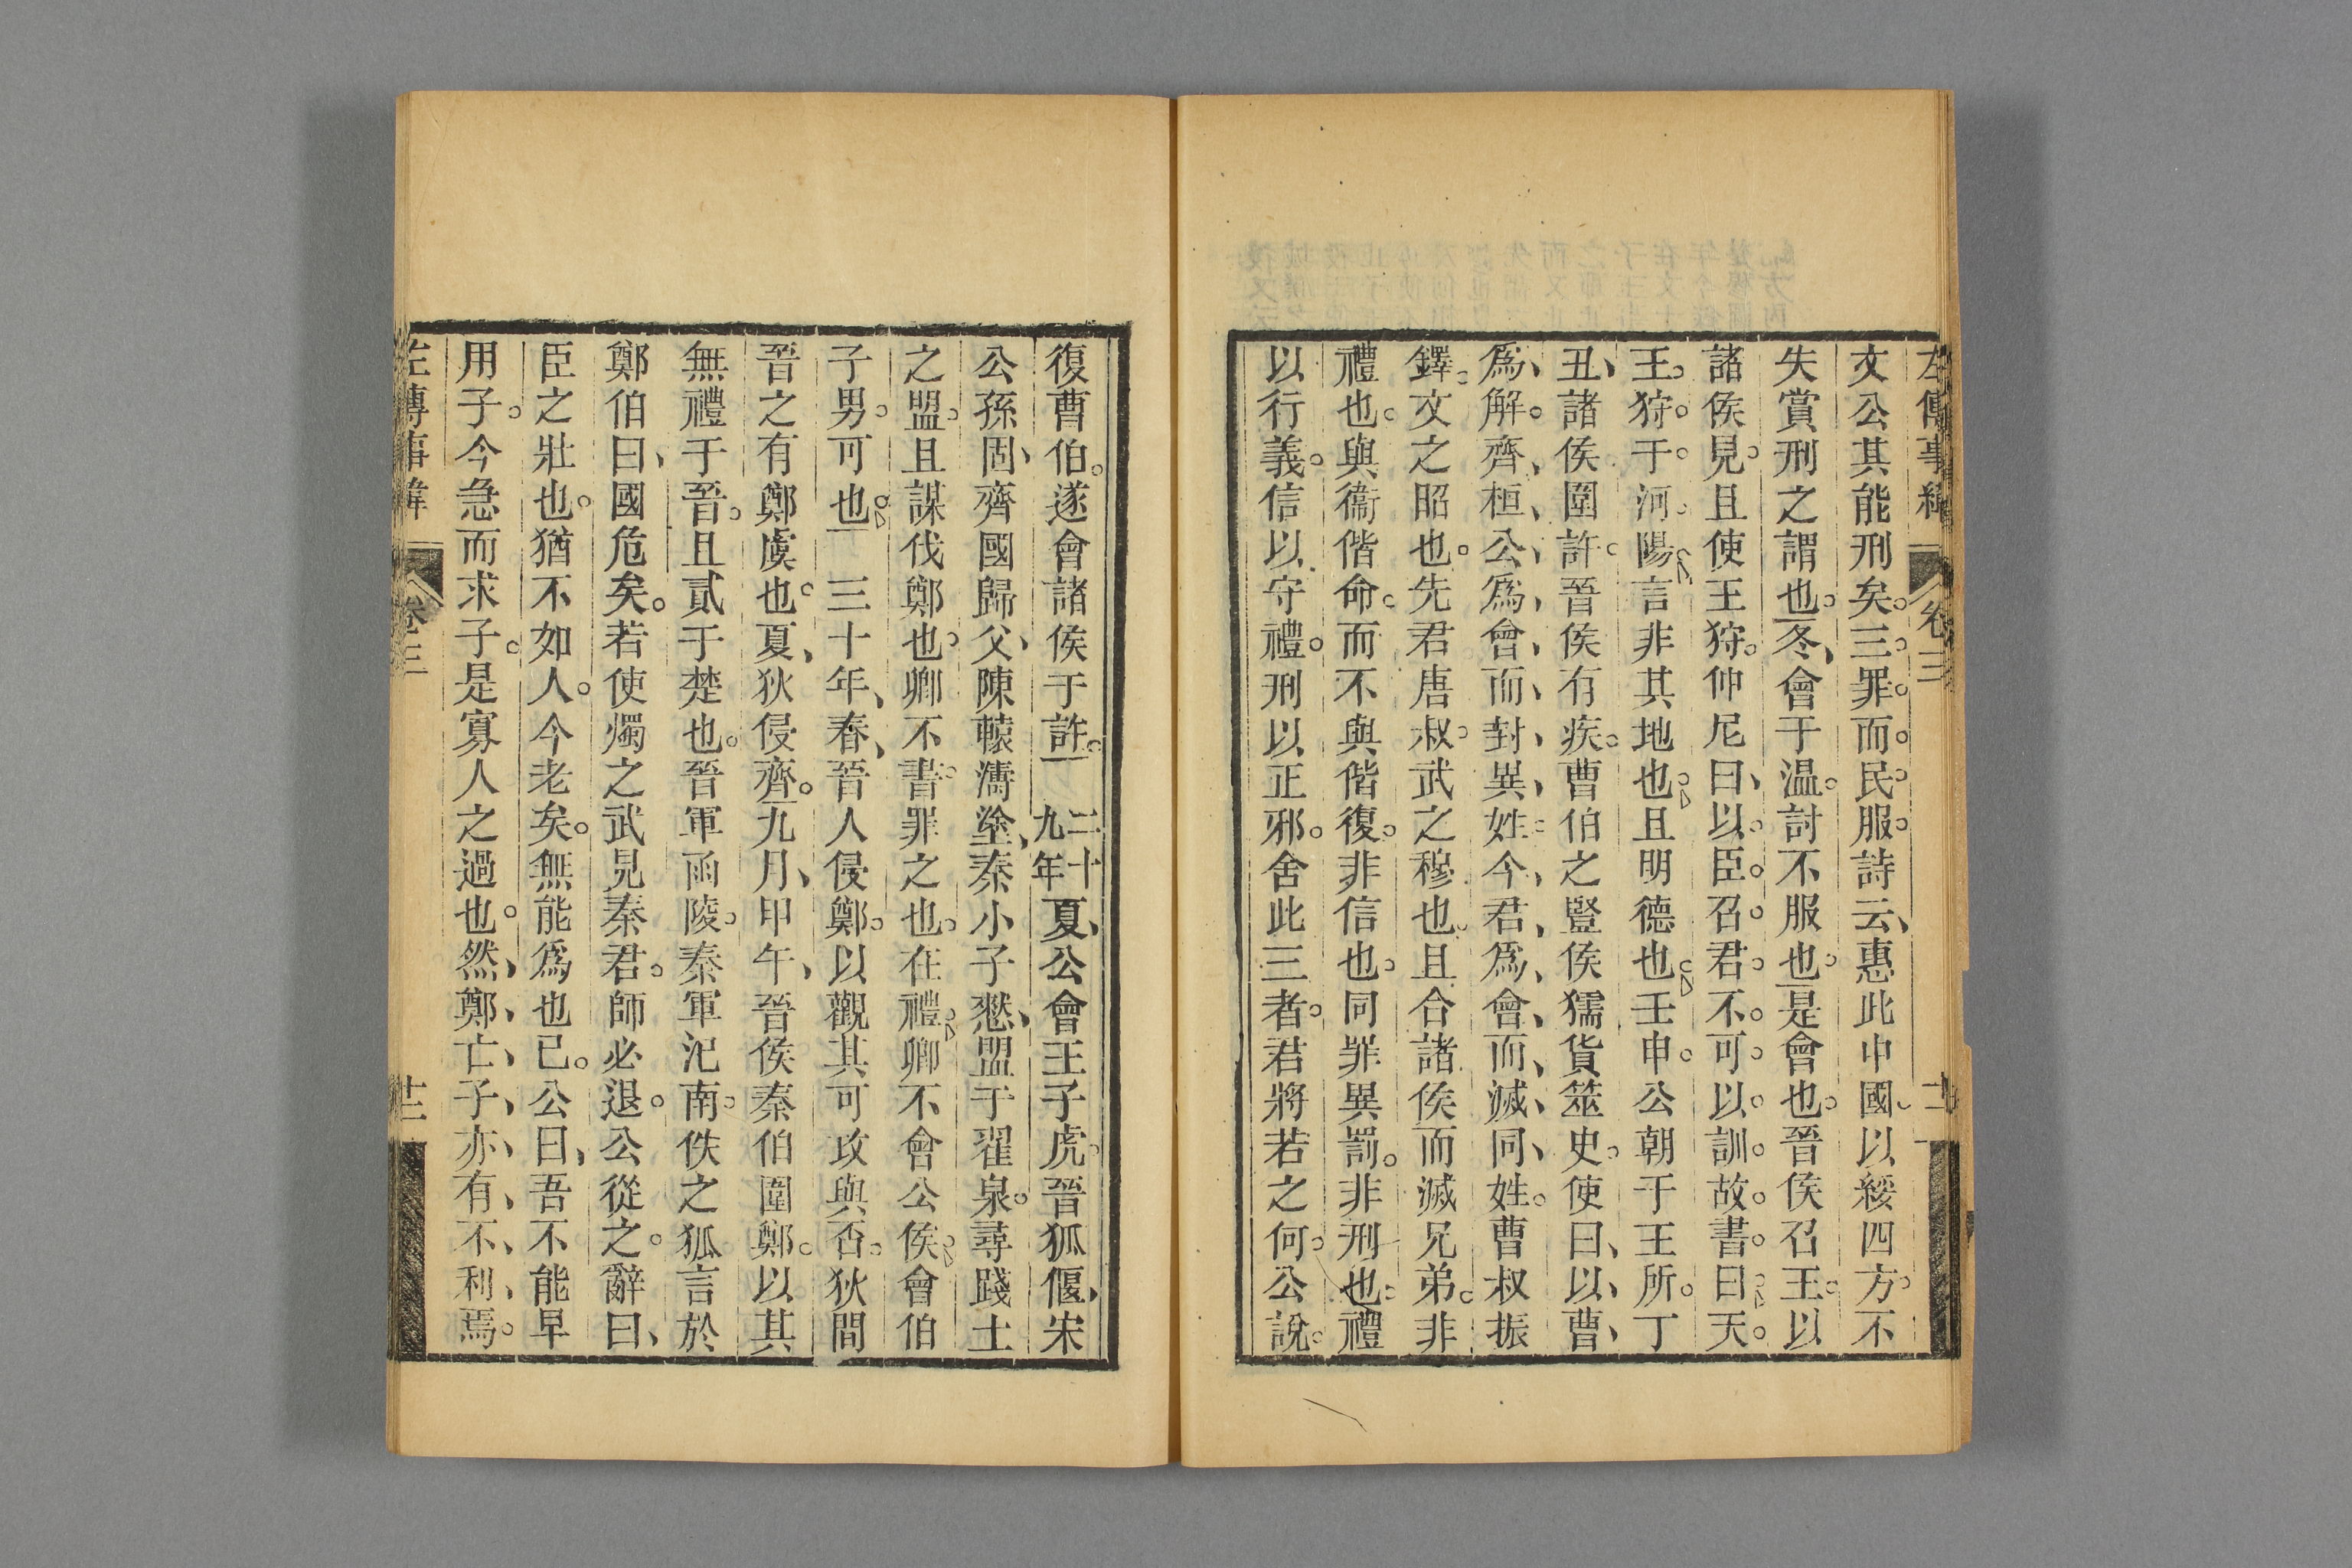 左傳事緯 卷三
文公其能刑矣。三罪而民服。詩云、惠此中國。以綏四方。不
失賞刑之謂也。冬、會于温。討不服也。是會也。晉侯召王。以
諸侯見。且使王狩。仲尼曰、以臣召君。不可以訓。故書曰。天
王狩于河陽。言非其地也。且明德也。壬申。公朝于王所。丁
丑、諸侯圍許。晉侯有疾。曹伯之豎侯獳貨筮史。使曰、以曹
爲解。齊桓公爲會而封異姓。今君爲會而滅同姓。曹叔振
鐸。文之昭也。先君唐叔。武之穆也。且合諸侯而滅兄弟。非
禮也。與衞偕命。而不與偕復。非信也。同罪異罰。非刑也。禮
以行義。信以守禮。刑以正邪。舍此三者。君將若之何。公說。
復曹伯。遂會諸侯于許。二十九年夏、公會王子虎。晉狐偃、宋
公孫固、齊國歸父、陳轅濤塗、秦小子憖、盟于翟泉。尋踐土
之盟。且謀伐鄭也。卿不書。罪之也。在禮。卿不會公侯。會伯
子男。可也。三十年、春、晉人侵鄭。以觀其可攻與否。狄間
晉之有鄭虞也。夏、狄侵齊。九月、甲午、晉侯秦伯圍鄭。以其
無禮于晉。且貳于楚也。晉軍函陵。秦軍氾南。佚之狐言於
鄭伯曰、國危矣。若使燭之武見秦君。師必退。公從之。辭曰、
臣之壯也。猶不如人。今老矣。無能爲也已。公曰、吾不能早
用子。今急而求子。是寡人之過也。然、鄭亡、子亦有不利焉。
左傳事緯 卷三 十二